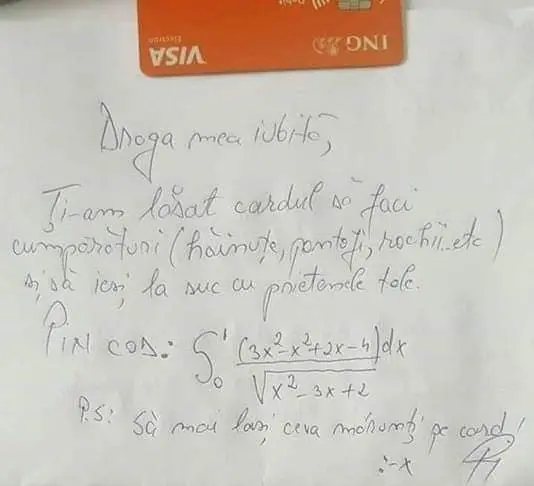 Debit
VISA
Electron
ING
Draga mea iubită,
Ți-am lăsat cardul să faci
cumpărături (hăinuțe, pantofi, rochii.. etc)
și să ieși la suc cu prietenele tale.
PIN COD: ∫₀¹ (3x²-x²+2x-4)dx / √(x²-3x+2)
P.S: Să mai lași ceva mărunți pe card!
:-x